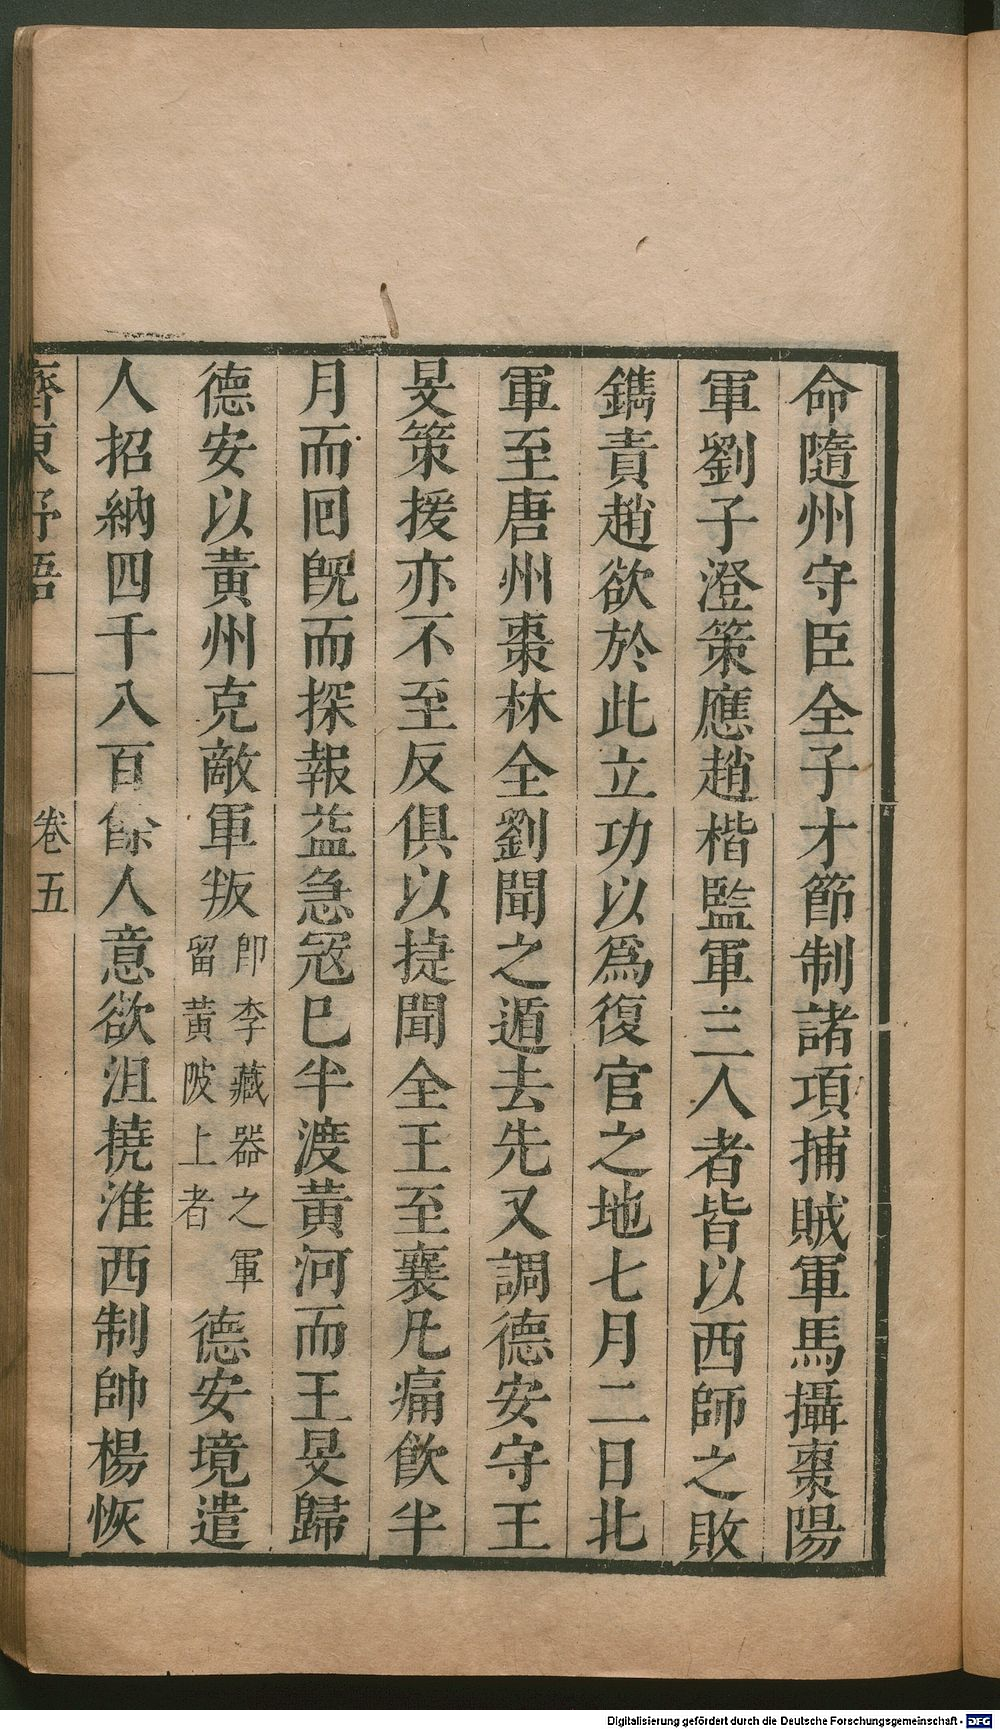 命隨州守臣全子才節制諸項捕賊軍馬攝棗陽
軍劉子澄策應趙楷監軍三人者皆以西師之敗
鐫責趙欲於此立功以爲復官之地七月二日北
軍至唐州棗林全劉聞之遁去先又調德安守王
旻策援亦不至反俱以捷聞全王至襄凡痛飲半
月而回旣而探報益急冦巳半渡黃河而王旻歸
德安以黃州克敵軍叛卽李藏器之軍留黃陂上者德安境遣
人招納四千八百餘人意欲沮撓淮西制帥楊恢
齊東野語
卷五
Digitalisierung gefördert durch die Deutsche Forschungsgemeinschaft - DFG